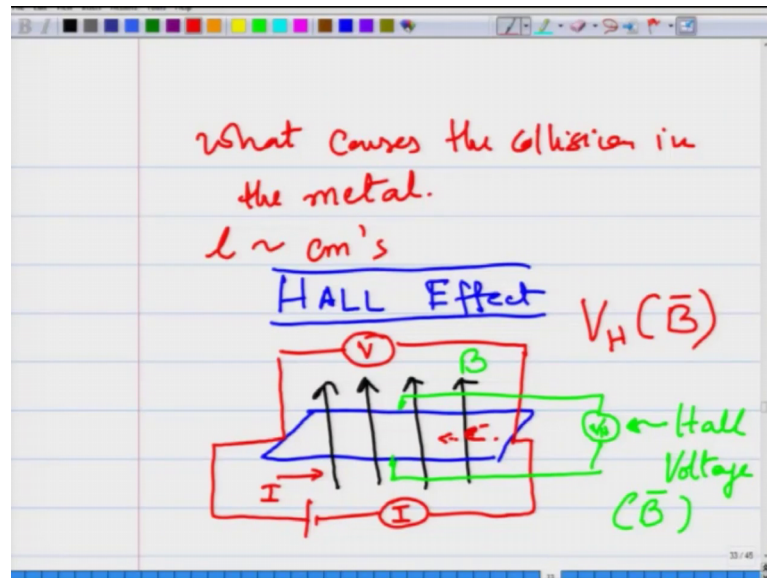 What causes the collision in
the metal.
l ~ cm's
HALL Effect
V_H (B̄)
V
B
V_H ← Hall
e⁻.
Voltage
I
(B̄)
I
33 / 45